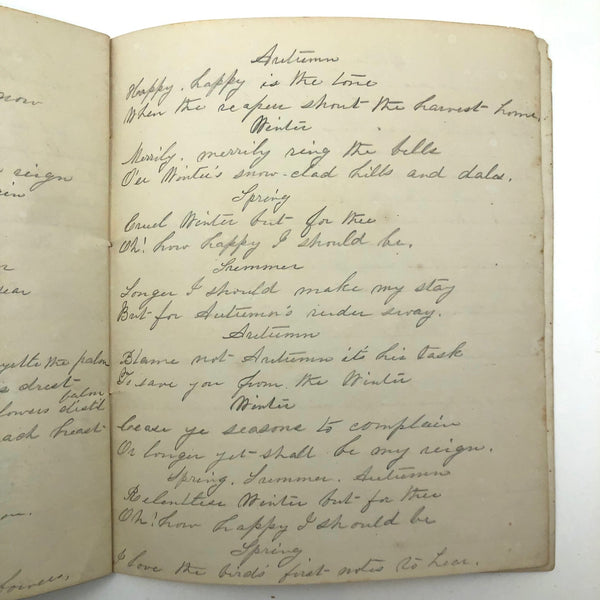 now
reign
ear
the palm
s drest
balm
flowers distil
each beast
Autumn
Happy, happy is the tone
When the reapers shout the harvest home.
Winter
Merrily, merrily ring the bells
O'er Winter's snow-clad hills and dales.
Spring
Cruel Winter but for thee
Oh! how happy I should be.
Summer
Longer I should make my stay
But for Autumn's ruder sway.
Autumn
Blame not Autumn it's his task
To save you from the Winter
Winter
Cease ye seasons to complain
Or longer yet shall be my reign.
Spring, Summer, Autumn
Relentless Winter but for thee
Oh! how happy I should be
Spring
I love the bird's first notes to hear.